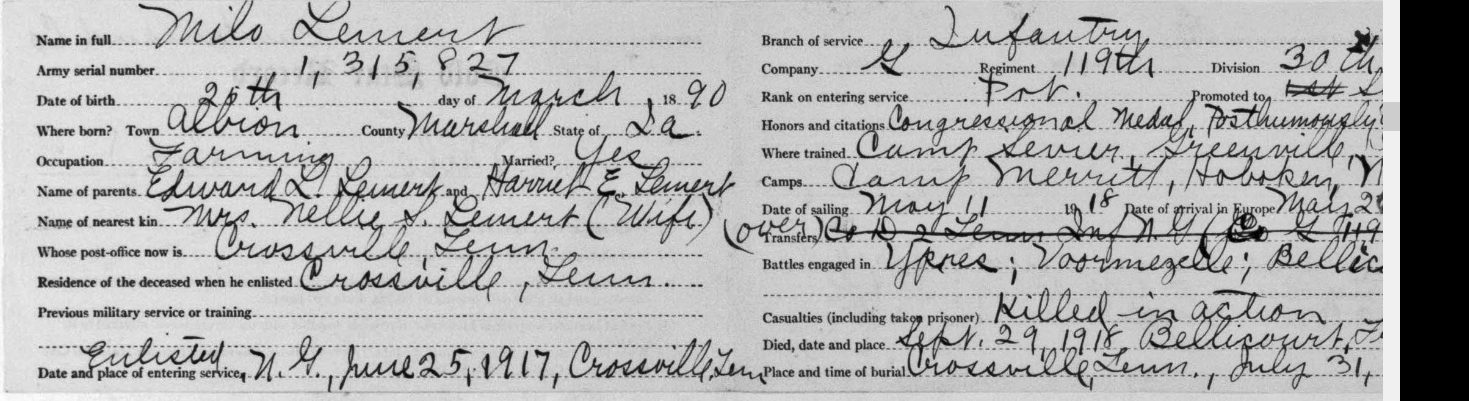 Name in full Milo Lemert
Army serial number 1,315,827
Date of birth 25th day of March, 1890
Where born? Town Albion County Marshall State of Ia.
Occupation Farming Married? Yes
Name of parents Edward L. Lemert and Harriet E. Lemert
Name of nearest kin Mrs. Nellie S. Lemert (Wife)
Whose post-office now is Crossville, Tenn. (over)
Residence of the deceased when he enlisted Crossville, Tenn.
Previous military service or training
Enlisted
Date and place of entering service, N. G., June 25, 1917, Crossville, Tenn
Branch of service Infantry
Company G Regiment 119th Division 30th
Rank on entering service Pvt. Promoted to 1st S
Honors and citations Congressional Medal, Posthumously
Where trained Camp Sevier, Greenville,
Camps Camp Merritt, Hoboken, N
Date of sailing May 11 1918 Date of arrival in Europe May 2
Transfers Co D 2 Tenn Inf N G (Co G 119
Battles engaged in Ypres; Voormezelle; Bellic
Casualties (including taken prisoner) Killed in action
Died, date and place Sept. 29, 1918 Bellicourt, F
Place and time of burial Crossville, Tenn., July 31,